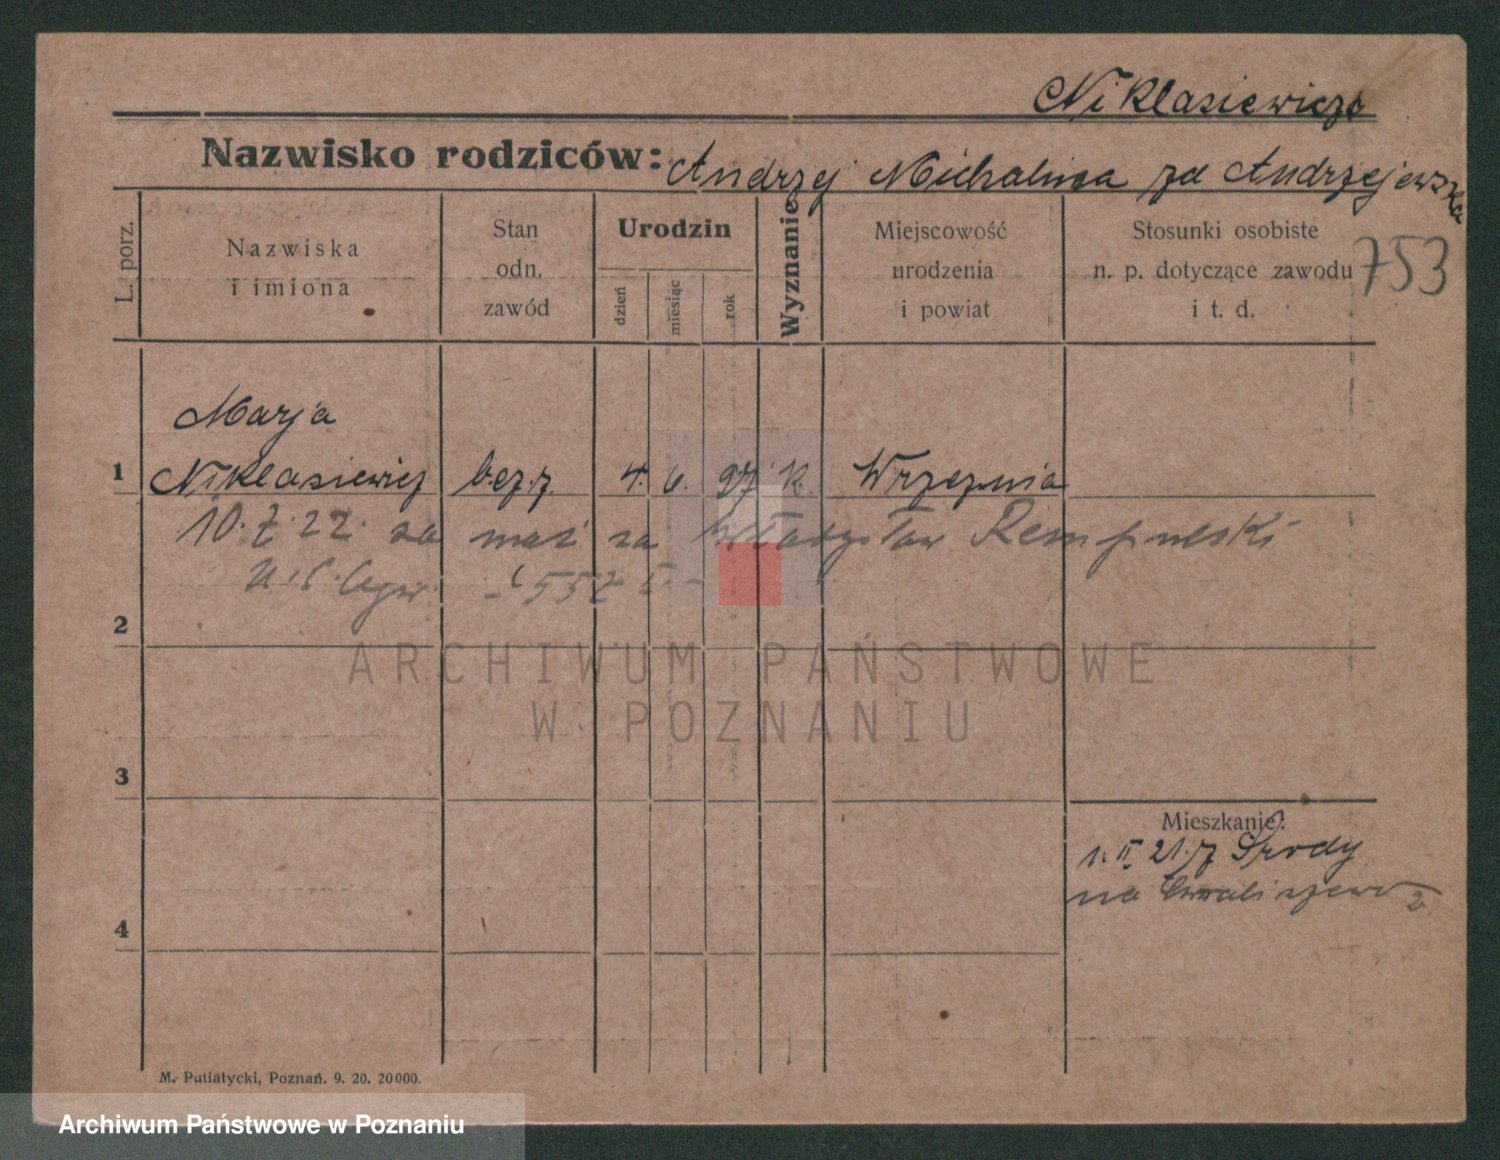 Niklasiewicz
Nazwisko rodziców: Andrzej Michalina zd Andrzejewska
L. porz.
Nazwiska
i imiona
Stan
odn.
zawód
Urodzin
dzień
miesiąc
rok
Wyznanie
Miejscowość
urodzenia
i powiat
Stosunki osobiste
n. p. dotyczące zawodu
i t. d.
753
Marja
1 Niklasiewicz bez.z. 4. 6. 97 k. Wrzesnia
10. 7. 22. za mąż za Władysław
2
ARCHIWUM PAŃSTWOWE
W POZNANIU
3
Mieszkanie:
1. II. 21. z Środy
na Chwaliszewo 2
4
M. Putiatycki, Poznań. 9. 20. 20000.
Archiwum Państwowe w Poznaniu